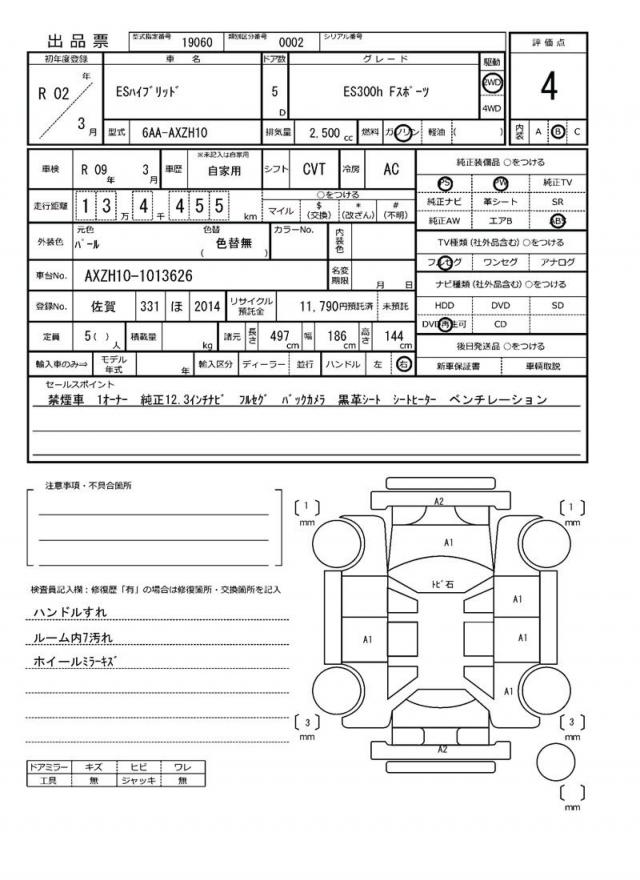 出品票 型式指定番号 19060 類別区分番号 0002 シリアル番号
初年度登録 車 名 ドア数 グレード 駆動 評価点
R 02 年 3 月 ESハイブリッド 5 D ES300h Fスポーツ 2WD 4WD 4
型式 6AA-AXZH10 排気量 2,500 cc 燃料 ガソリン 軽油 ( ) 内装 A B C
車検 R 09 年 3 月 車歴 ※未記入は自家用 自家用 シフト CVT 冷房 AC
走行距離 1 3 万 4 千 4 5 5 km ○をつける マイル $ (交換) * (改ざん) # (不明)
外装色 元色 パール 色替 ( 色替無 ) カラーNo. 内装色
車台No. AXZH10-1013626 名変期限 月 日
登録No. 佐賀 331 ほ 2014 リサイクル預託金 11,790円預託済 未預託
定員 5 ( ) 人 積載量 kg 諸元 長さ 497 cm 幅 186 cm 高さ 144 cm
輸入車のみ⇒ モデル年式 年 輸入区分 ディーラー 並行 ハンドル 左 右
純正装備品 ○をつける
PS PW 純正TV
純正ナビ 革シート SR
純正AW エアB ABS
TV種類 (社外品含む) ○をつける
フルセグ ワンセグ アナログ
ナビ種類 (社外品含む) ○をつける
HDD DVD SD
DVD再生可 CD
後日発送品 ○をつける
新車保証書 車輌取説
セールスポイント
禁煙車 1オーナー 純正12.3インチナビ フルセグ バックカメラ 黒革シート シートヒーター ベンチレーション
注意事項・不具合箇所
検査員記入欄：修復歴「有」の場合は修復箇所・交換箇所を記入
ハンドルすれ
ルーム内7汚れ
ホイールミラーキズ
ドアミラー キズ ヒビ ワレ
工具 無 ジャッキ 無
[ 1 ] mm A2 [ 1 ] mm
A1
トビ石
A1
A1 A1
A1
[ 3 ] mm A2 [ 3 ] mm
[ ] mm